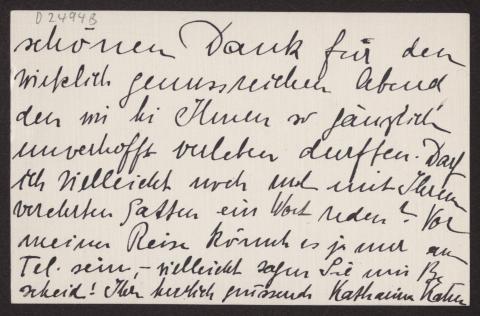 D 2494B
schönen Dank für den
wirklich genussreichen Abend
den wir bei Ihnen so gänzlich
unverhofft verleben durften. Darf
ich vielleicht noch mal mit Ihrem
verehrten Gatten ein Wort reden? Vor
meiner Reise könnt es ja nur am
Tel. sein, – vielleicht sagen Sie mir Be-
scheid! Ihre herzlich grüssende Katharina